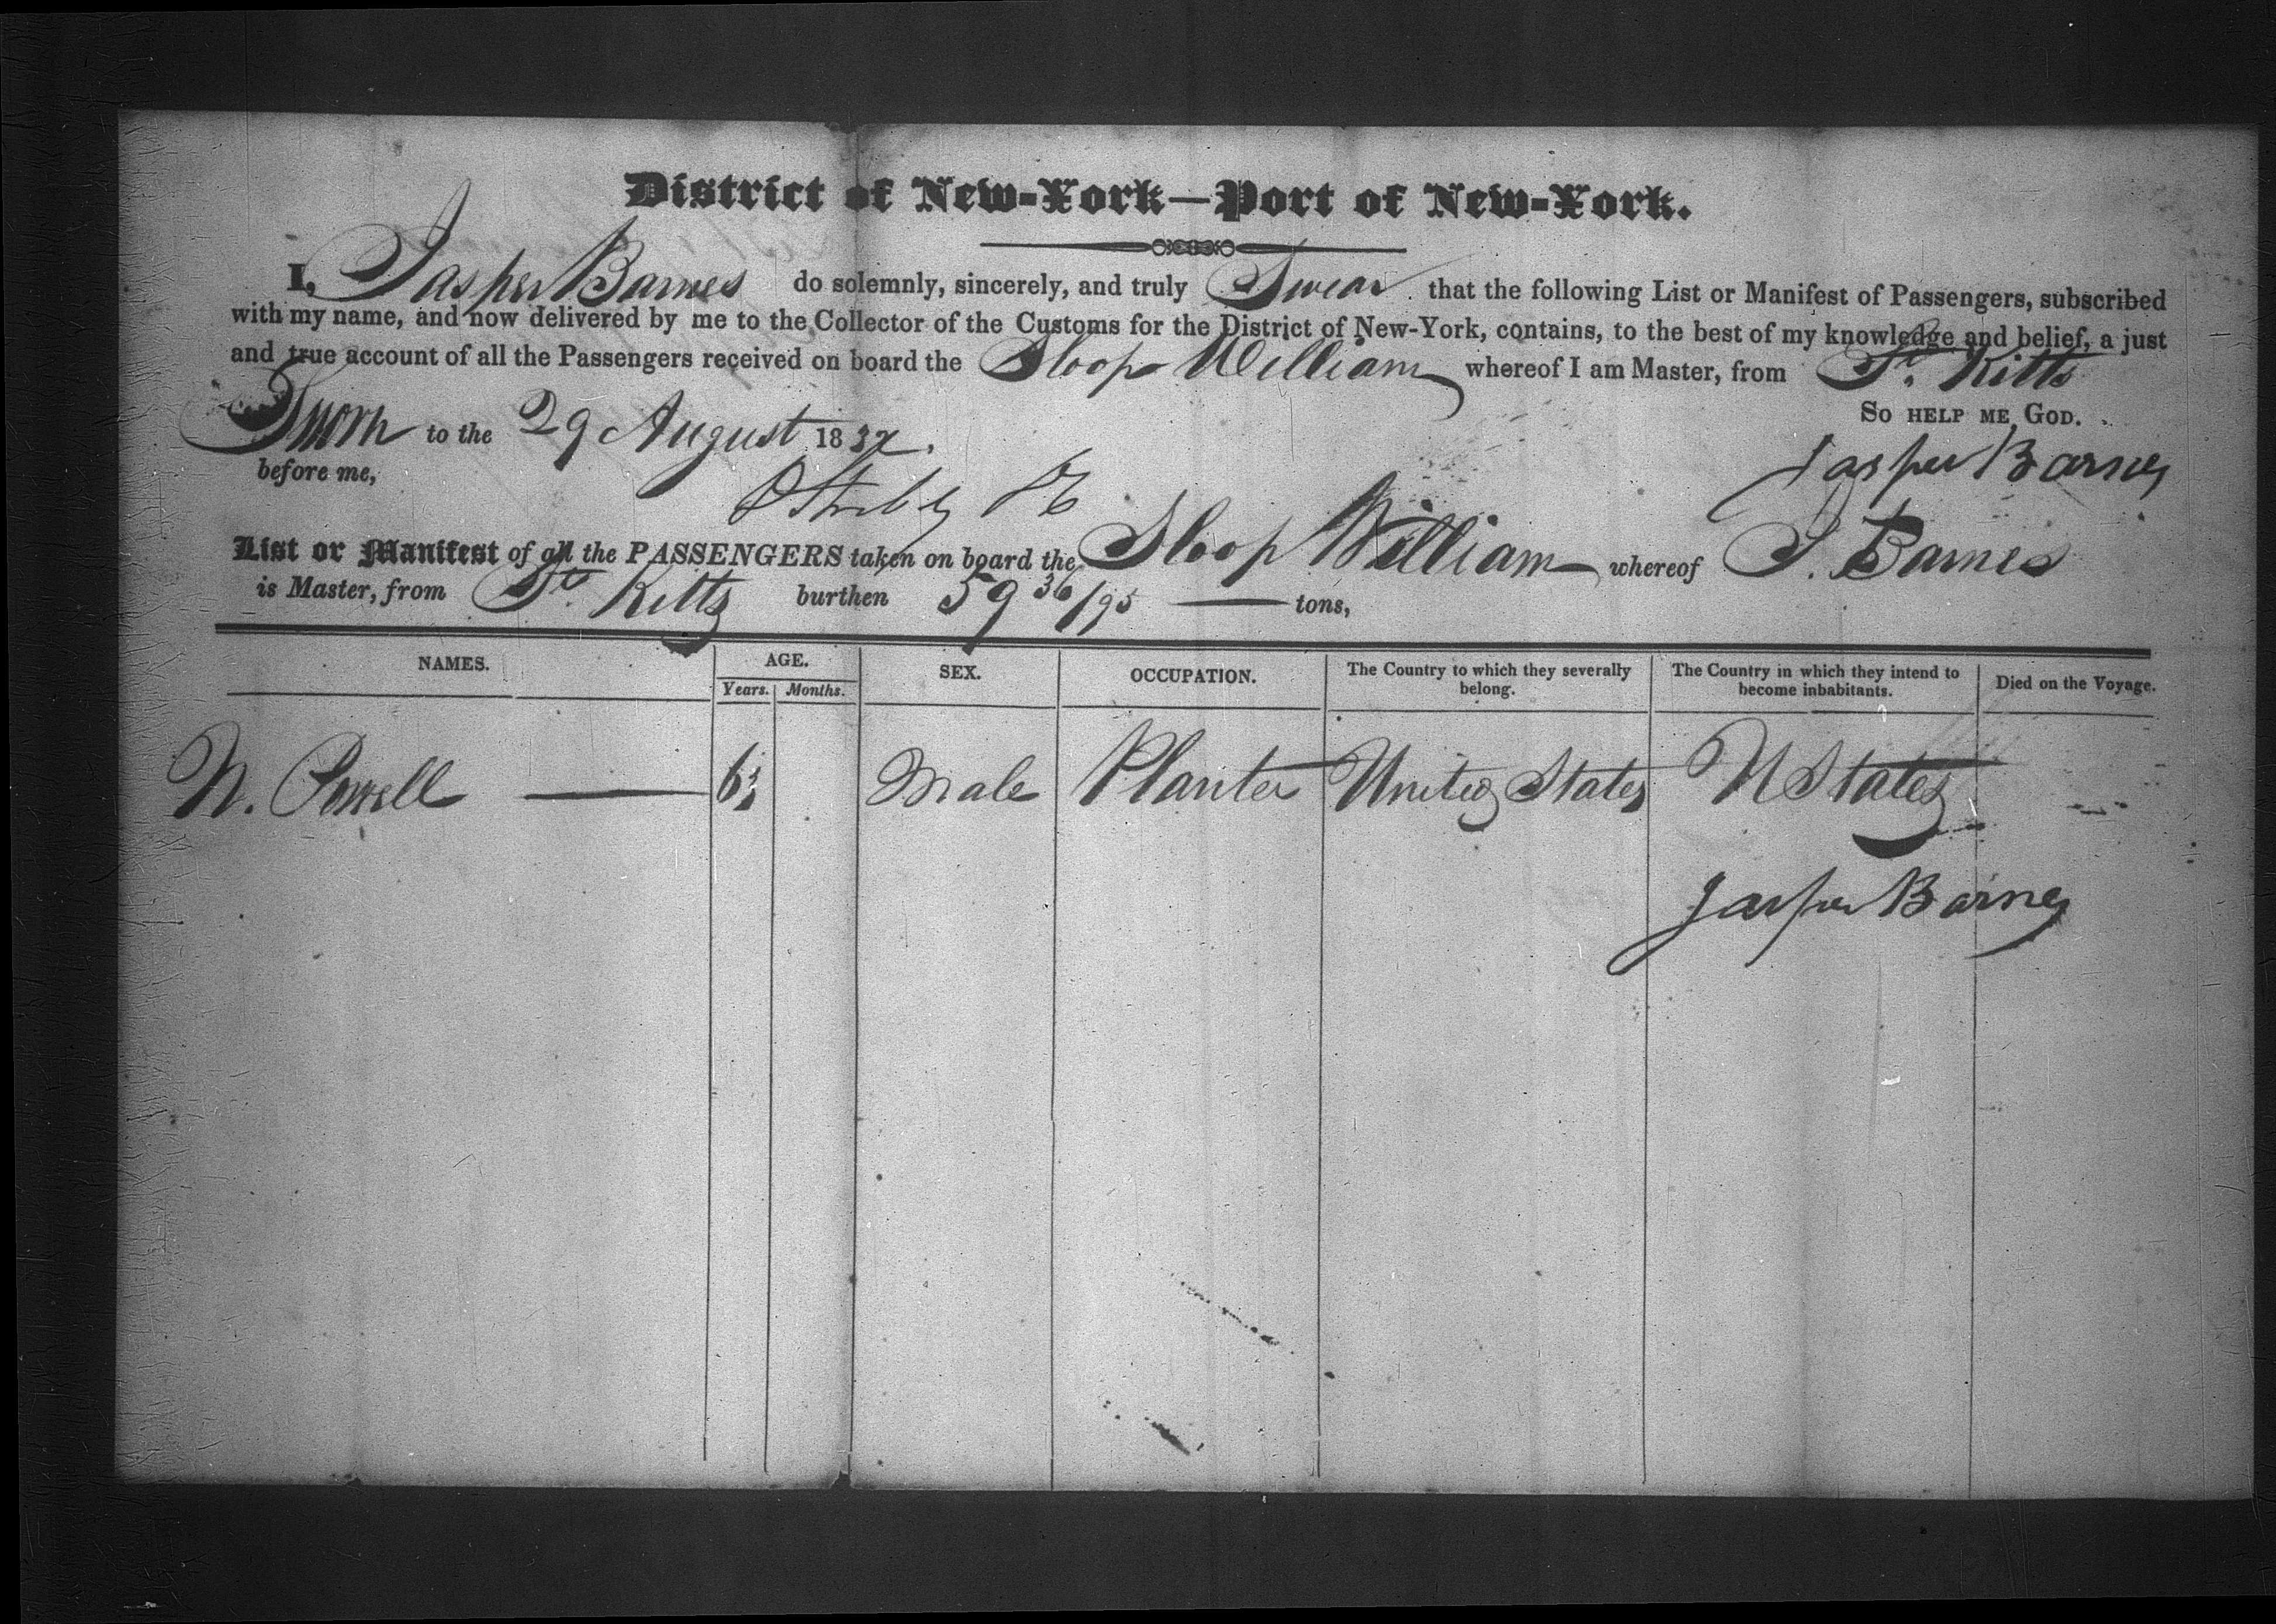 District of New-York—Port of New-York.
I, Jasper Barnes do solemnly, sincerely, and truly Swear that the following List or Manifest of Passengers, subscribed
with my name, and now delivered by me to the Collector of the Customs for the District of New-York, contains, to the best of my knowledge and belief, a just
and true account of all the Passengers received on board the Sloop William whereof I am Master, from St. Kitts
So help me God.
Sworn to the 29 August 1832.
before me,
Jasper Barnes
List or Manifest of all the PASSENGERS taken on board the Sloop William whereof J. Barnes
is Master, from St. Kitts burthen 59 36/95 tons,
NAMES. AGE. SEX. OCCUPATION. The Country to which they severally belong. The Country in which they intend to become inhabitants. Died on the Voyage.
Years. Months.
N. Powell 63 Male Planter United States U States
Jasper Barnes